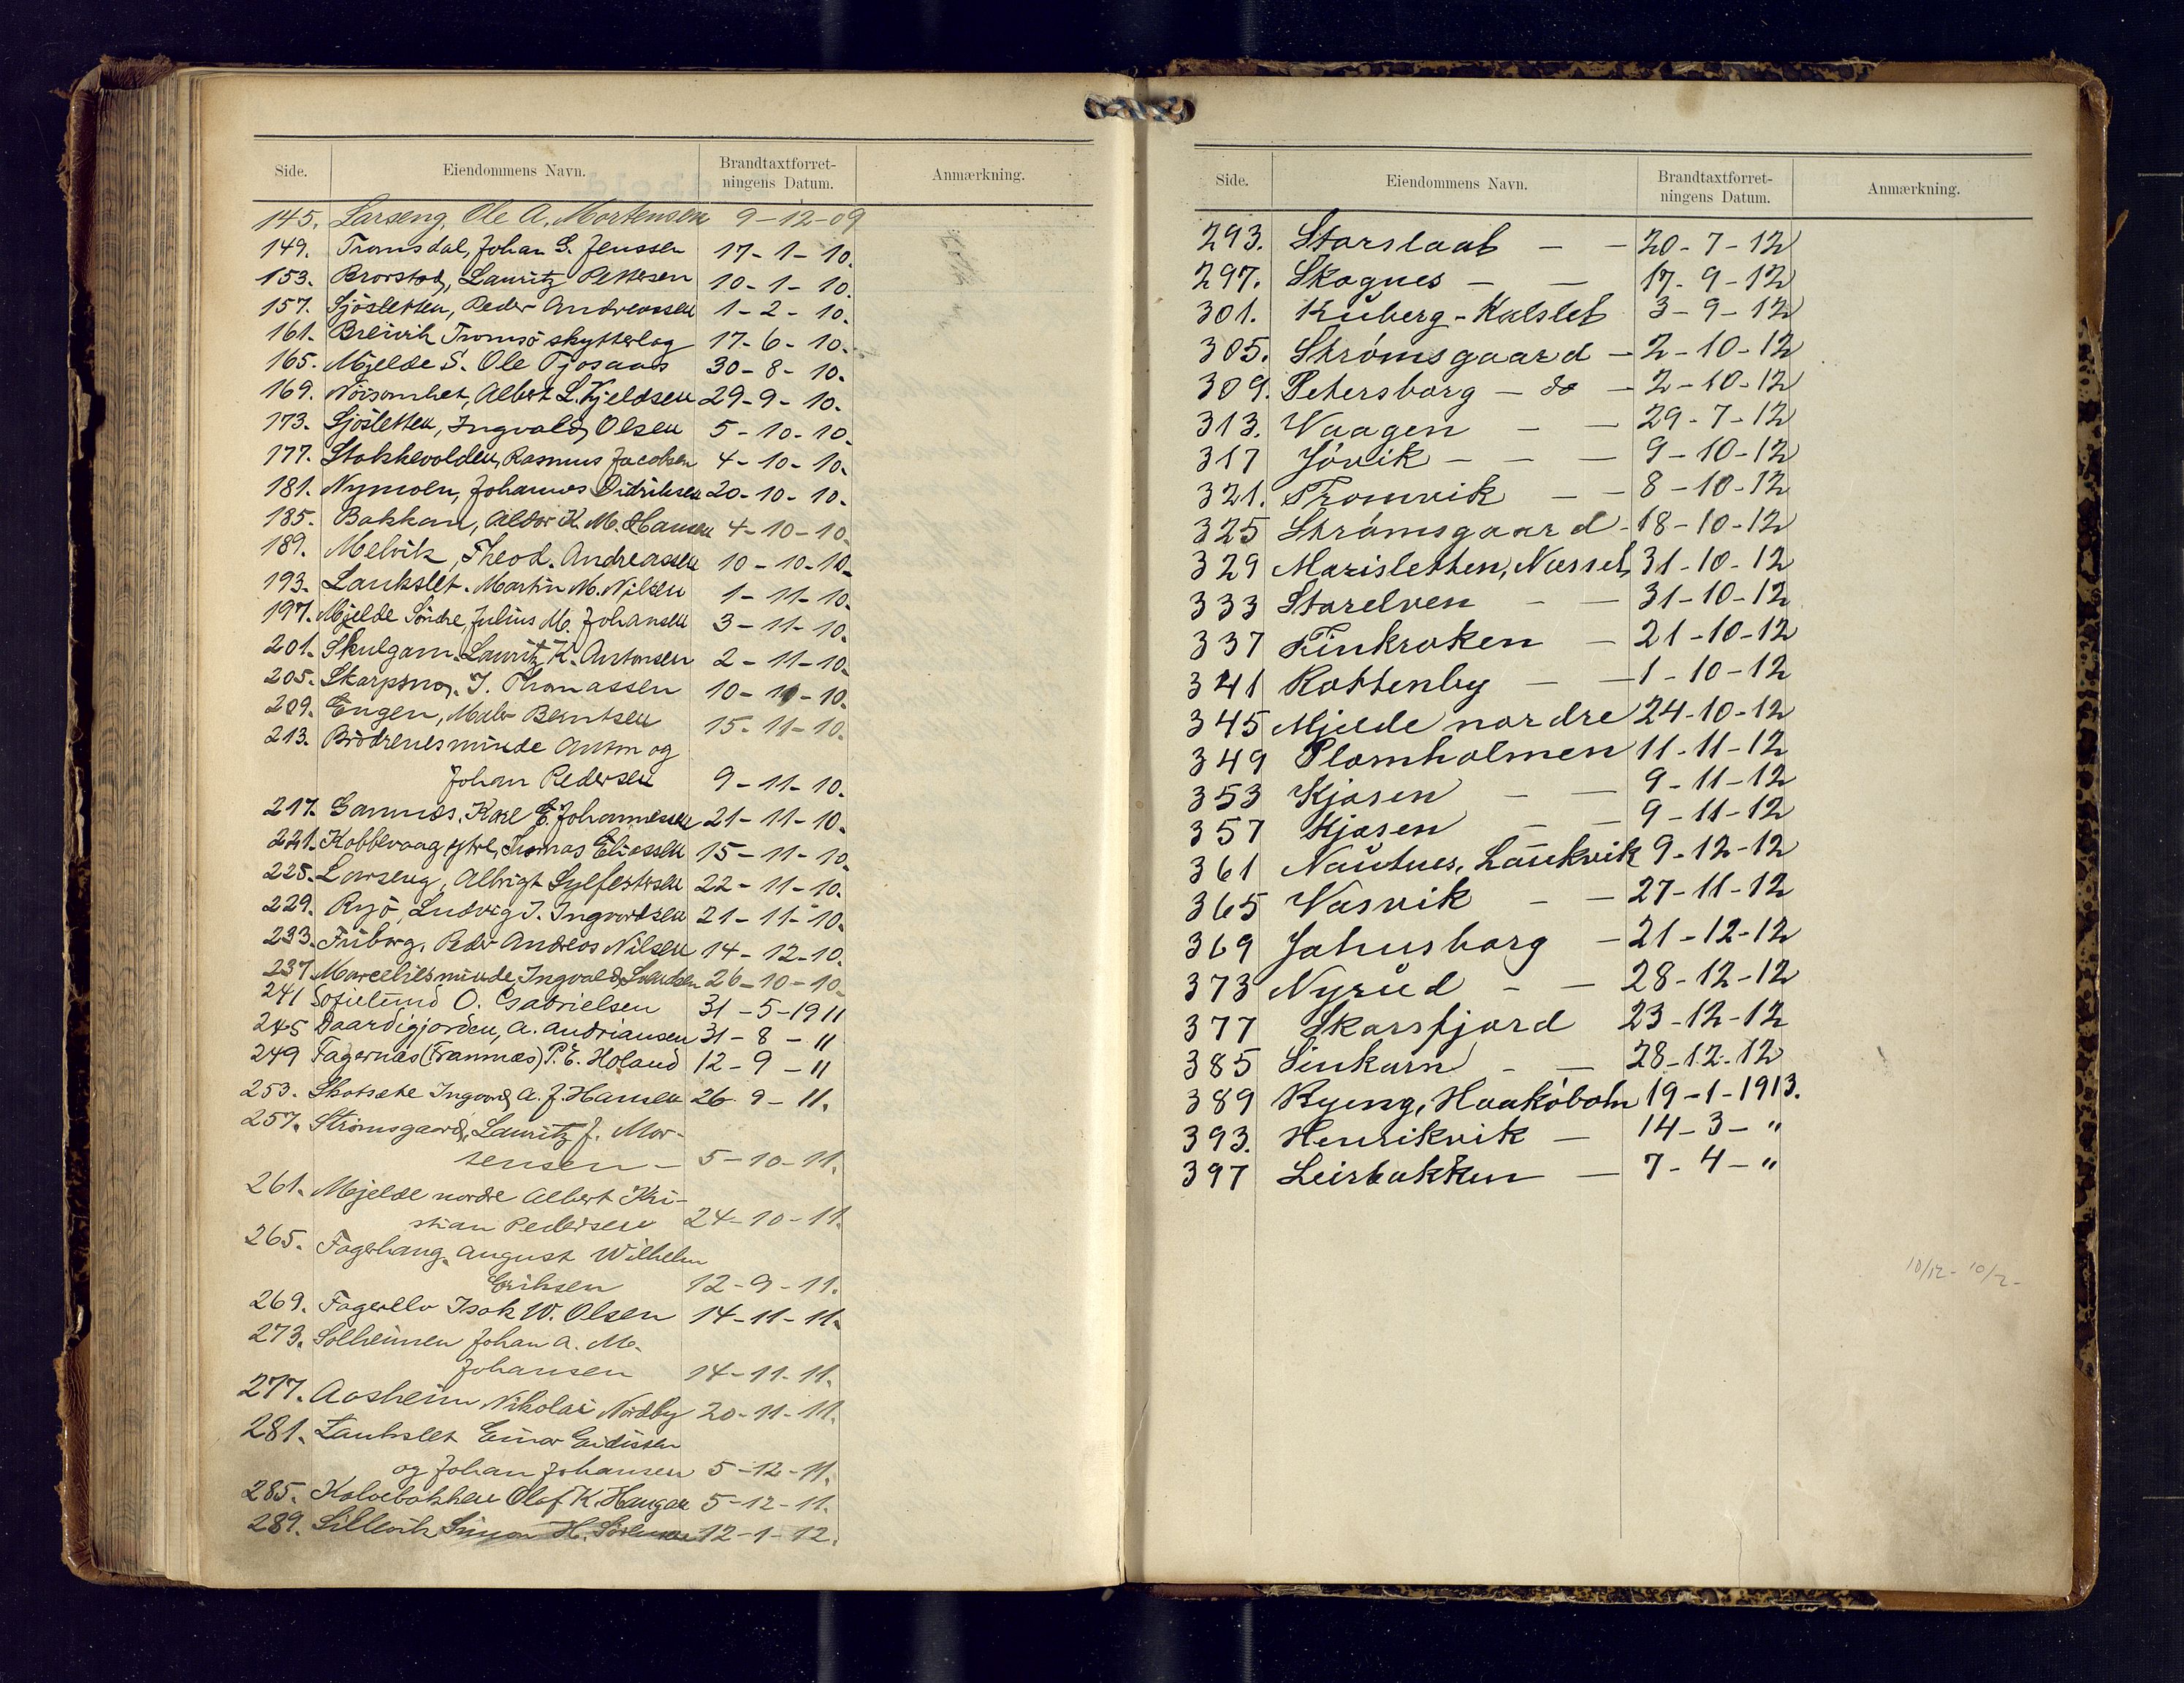 Side. Eiendommens Navn. Brandtaxtforret-
ningens Datum. Anmærkning.
145. Larseng, Ole A. Mortensen 9-12-09
149. Tromsdal, Johan S. Jenssen 17-1-10.
153. Brorstad, Lauritz Pettersen 10-1-10.
157. Sjösletten, Peder Andreassen 1-2-10.
161. Breivik Tromsö skytterlag 17-6-10.
165. Mjelde S. Ole Tjosaas 30-8-10.
169. Nöisomhet, Albert L. Kjeldsen 29-9-10.
173. Sjösletten, Ingvald Olsen 5-10-10.
177. Stokkevolden, Rasmus Jacobsen 4-10-10.
181. Nymoen, Johannes Didriksen 20-10-10.
185. Bakkan, Aldor K. M. Hansen 4-10-10.
189. Melvik, Theod. Andreassen 10-10-10.
193. Laukslet. Martin M. Nilsen 1-11-10.
197. Mjelde Söndre, Julius M. Johansen 3-11-10.
201. Skulgam. Lauritz K. Antonsen 2-11-10.
205. Skarpsno. J. Thomassen 10-11-10.
209. Engen, Maler Berntsen 15-11-10.
213. Brödrenesminde Anton og
Johan Pedersen 9-11-10.
217. Gamnes, Karl E. Johannesen 21-11-10.
221. Kobbevaag ytre, Thomas Eliassen 15-11-10.
225. Larseng, Albrigt Sylfestersen 22-11-10.
229. Ryö, Ludvig J. Ingvardsen 21-11-10.
233. Friborg, Peder Andreas Nilsen 14-12-10.
237. Marceliesminde, Ingvald Svendsen 26-10-10.
241 Sofielund O. Gabrielsen 31-5-1911
245 Daardigjorden, A. Andriansen 31-8-"
249 Fagernæs (Framnæs) P. E. Holand 12-9-"
253. Skotsæte Ingvard A. J. Hansen 26-9-11.
257. Strömsgaard, Lauritz J. Mor-
tensen - 5-10-11.
261. Mjelde nordre Albert Kri-
stian Pedersen 24-10-11.
265. Fagerhaug. August Wilhelm
Eriksen 12-9-11.
269. Fagerli Isak W. Olsen 14-11-11.
273. Solheimen Johan A. M.
Johansen 14-11-11.
277. Aasheim Nikolai Nordby 20-11-11.
281. Laukslet Einar Eidissen
og Johan Johansen 5-12-11.
285. Kalvebakken Olaf K. Haugan 5-12-11.
289. Sillevik Simon H. Sörensen 12-1-12.
Side. Eiendommens Navn. Brandtaxtforret-
ningens Datum. Anmærkning.
293. Storslaat - - 20-7-12
297. Skognes - - 17-9-12
301. Kuberg-Kalslet 3-9-12
305. Strømsgaard - 2-10-12
309. Petersborg - do - 2-10-12
313. Vaagen - - 29-7-12
317 Jövik - - - 9-10-12
321. Tromvik - - 8-10-12
325 Strømsgaard - 18-10-12
329 Marisletten, Næsset 31-10-12
333 Storelven - - 31-10-12
337 Finkroken - 21-10-12
341 Kattenby - - 1-10-12
345 Mjelde nordre 24-10-12
349 Plomholmen 11-11-12
353 Kjosen - - 9-11-12
357 Kjosen - - 9-11-12
361 Nautnes, Laukvik 9-12-12
365 Vasvik - - 27-11-12
369 Johnsborg - 21-12-12
373 Nyrud - - 28-12-12
377 Skarsfjord 23-12-12
385 Sinkarn - - 28-12-12
389 Ryeng, Haaköbotn 19-1-1913.
393. Henrikvik - 14-3-"
397 Leirbakken - 7-4-"
10/12- 10/2-